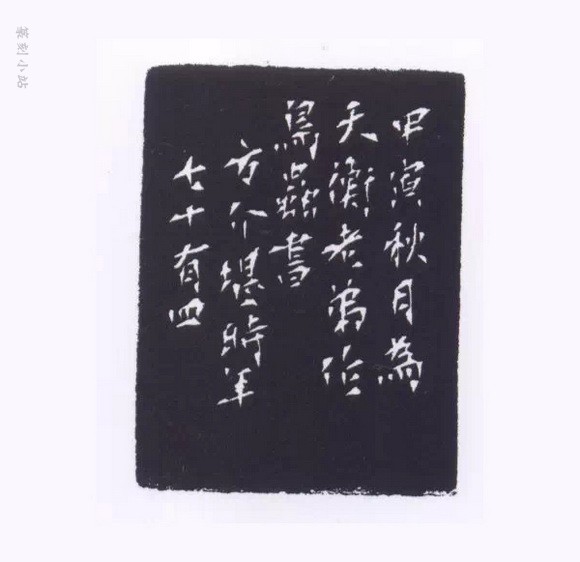 甲寅秋月為
天衡老弟作
鳥蟲書
方介堪時年
七十有四
篆刻小站